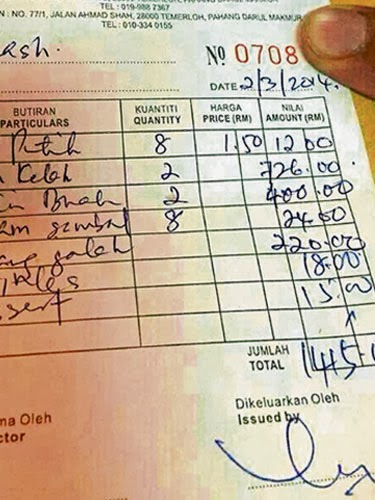 TEL : 019-988 7367
N : NO. 77/1, JALAN AHMAD SHAH, 28000 TEMERLOH, PAHANG DARUL MAKMUR
TEL : 010-334 0155
ash.
Nº 0708
DATE 2/3/2014.
BUTIRAN KUANTITI HARGA NILAI
PARTICULARS QUANTITY PRICE (RM) AMOUNT (RM)
Putih 8 1.50 12 00
Kelah 2 726.00
Buah 2 400.00
8 24.00
galah 220.00
18.00
ssert 15.00
JUMLAH
TOTAL 1415.
ma Oleh Dikeluarkan Oleh
ctor Issued by